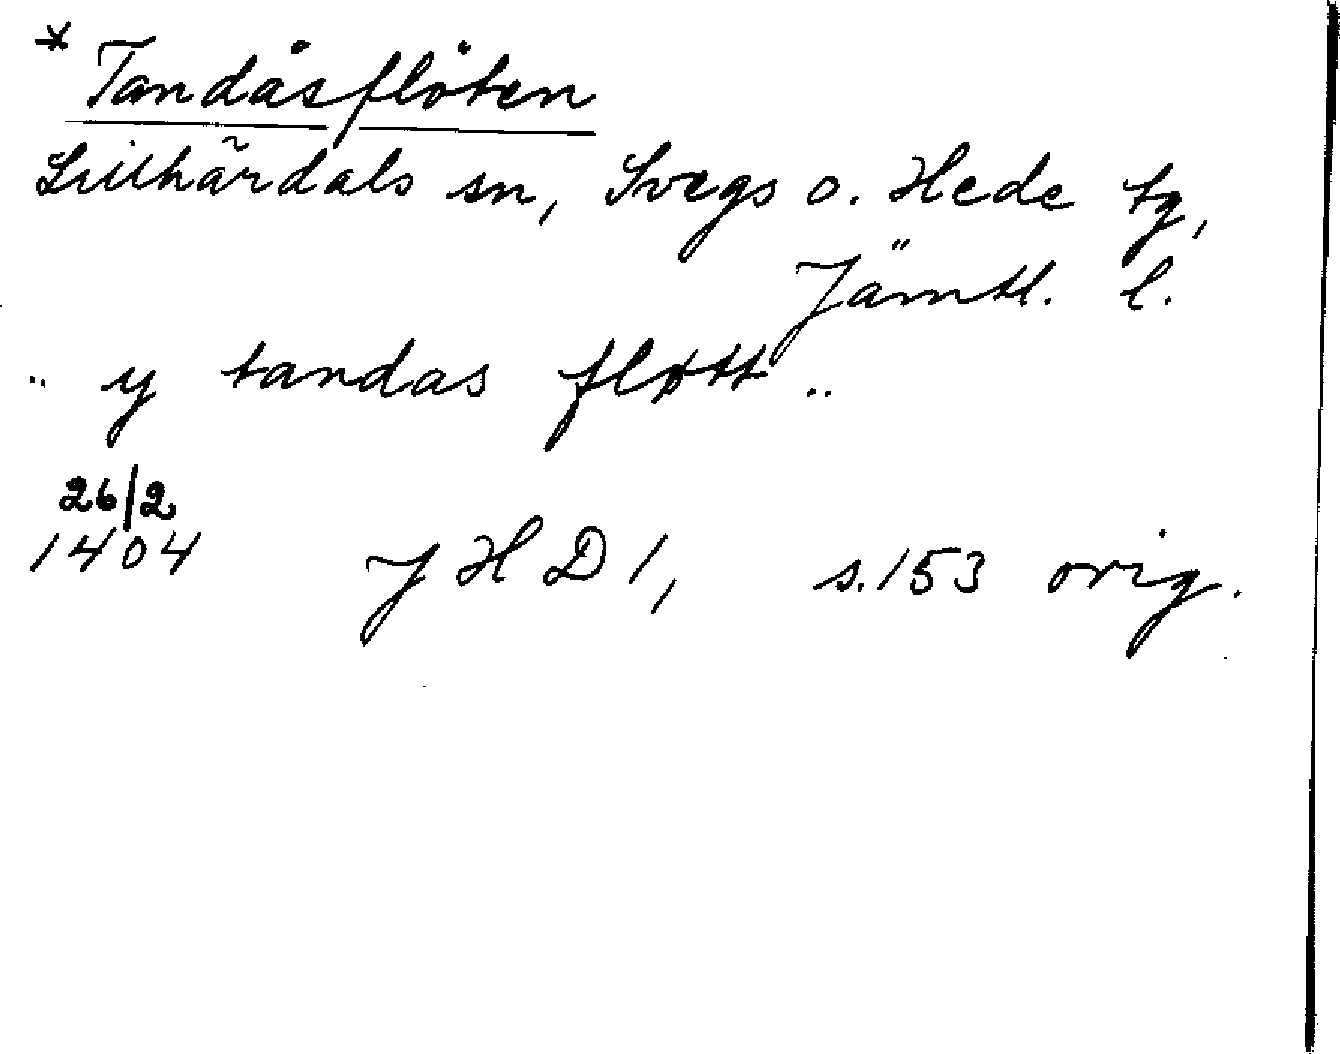 * Tandåsflöten
Lillhärdals sn, Svegs o. Hede tg,
Jämtl. l.
" y tandas fløtt "
26/2
1404 JHD 1, s. 153 orig.